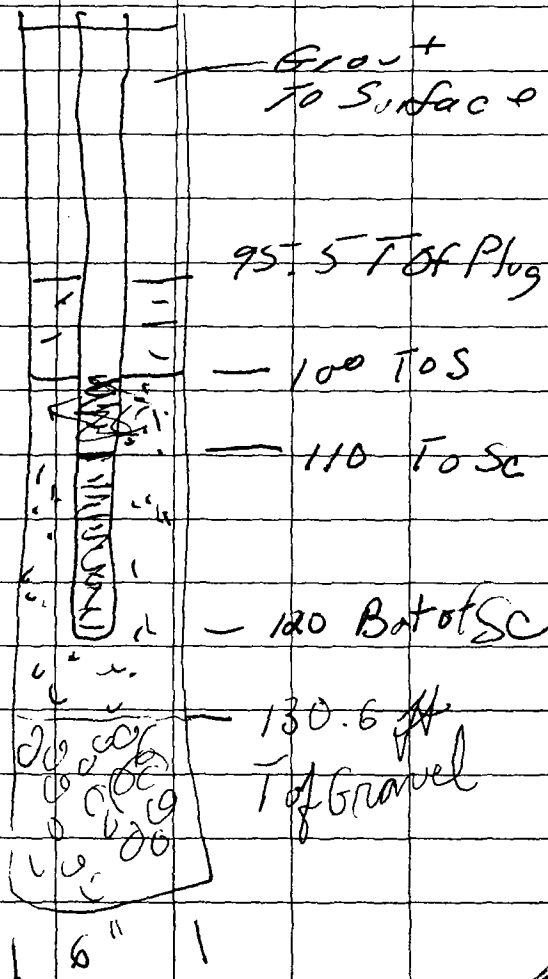 Grout
To Surface
95.5 T Of Plug
100 ToS
110 To Sc
120 Bot of SC
130.6 ft
T of Gravel
6"